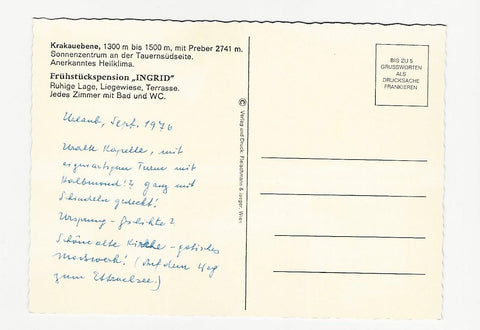 Krakauebene, 1300 m bis 1500 m, mit Preber 2741 m.
Sonnenzentrum an der Tauernsüdseite.
Anerkanntes Heilklima.
Frühstückspension „INGRID"
Ruhige Lage, Liegewiese, Terrasse.
Jedes Zimmer mit Bad und WC.
Urlaub, Sept. 1976
Uralte Kapelle, mit
eigenartigem Turm mit
Halbmond!? ganz mit
Schindeln gedeckt!
Ursprung - Geschichte?
Schöne alte Kirche - gotisches
Masswerk! (Auf dem Weg
zum Etrachsee.)
© Verlag und Druck: Fleischmann & Jorger, Wien
BIS ZU 5
GRUSSWORTEN
ALS
DRUCKSACHE
FRANKIEREN